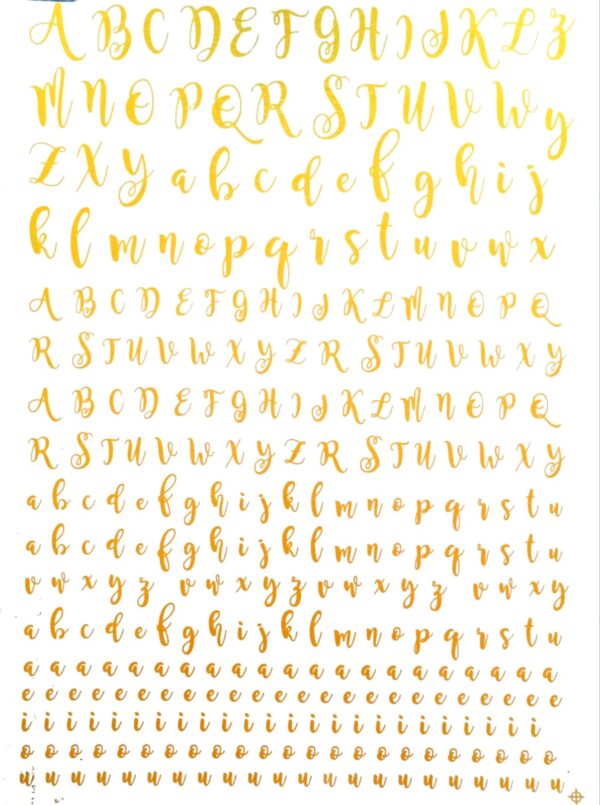 A B C D E F G H I J K L z
M N O P Q R S T U V W y
Z X Y a b c d e f g h i j
k l m n o p q r s t u v w x
A B C D E F G H I J K L M N O P Q
R S T U V W X Y Z R S T U V W X Y
A B C D E F G H I J K L M N O P Q
R S T U V W X Y Z R S T U V W X Y
a b c d e f g h i j k l m n o p q r s t u
a b c d e f g h i j k l m n o p q r s t u
v w x y z v w x y z v w x y z v w x y
a b c d e f g h i j k l m n o p q r s t u
a a a a a a a a a a a a a a a a a a a a a a a
e e e e e e e e e e e e e e e e e e e e e e e e
i i i i i i i i i i i i i i i i i i i i i i i i
o o o o o o o o o o o o o o o o o o o o o o
u u u u u u u u u u u u u u u u u u u u u u u